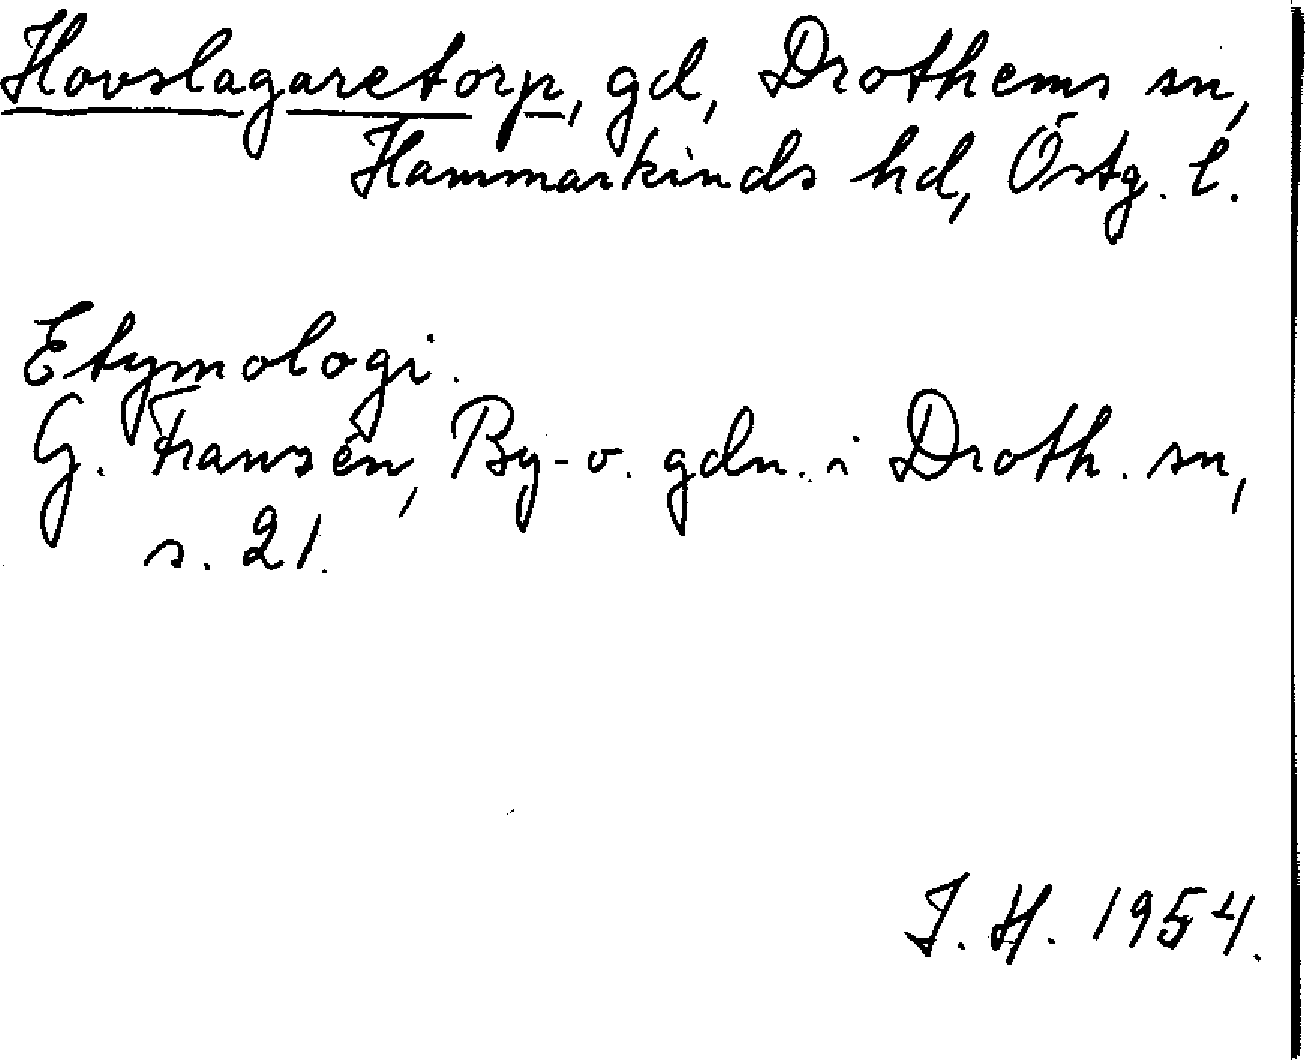 Hovslagaretorp, gd, Drothems sn,
Hammarkinds hd, Östg. l.
Etymologi.
G. Fransén, By- o. gdn. i Droth. sn,
s. 21.
J. H. 1954.